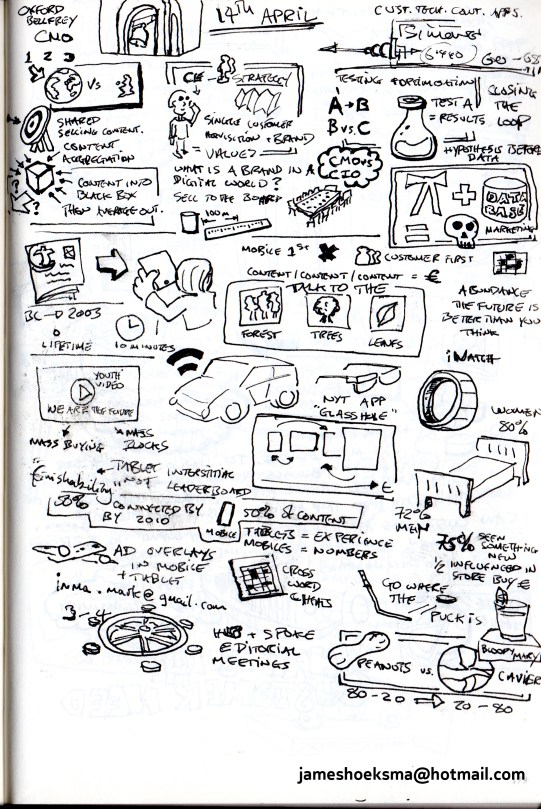 OXFORD
BELFREY
CMO
14TH APRIL
CUST. TECH. CONT. APPS.
1 2 3
VS
STRATEGY
TESTING + OPTIMISATION
CLOSING
THE
LOOP
A → B
B VS. C
TEST A
= RESULTS
HYPOTHESIS BEFORE
DATA
SHARED
SELLING CONTENT.
CONTENT
AGGREGATION
CONTENT INTO
BLACK BOX
THEN AVERAGE OUT.
SINGLE CUSTOMER
ACQUISITION + BRAND
= VALUE?
WHAT IS A BRAND IN A
DIGITAL WORLD?
SELL TO THE BOARD
100m
CMO VS
CIO
+
DATA
BASE
=
MARKETING
MOBILE 1ST
CUSTOMER FIRST
CONTENT/CONTENT/CONTENT = €
TALK TO THE
FOREST
TREES
LEAVES
ABUNDANCE
THE FUTURE IS
BETTER THAN YOU
THINK
BC - D 2003
LIFETIME
10 MINUTES
iWATCH
YOUTH
VIDEO
WE ARE THE FUTURE
MASS BUYING
MASS
BLOCKS
NYT APP
"GLASSHOLE"
WOMEN
80%
"finishability"
TABLET
"NOT
INTERSTITIAL
LEADERBOARD
E
50% CONNECTED BY
BY 2010
MOBILE
50% of CONTENT
TABLETS = EXPERIENCE
MOBILES = NUMBERS
72%
MEN
75% SEEN
SOMETHING
NEW
1/2 INFLUENCED IN
STORE BUY €
AD OVERLAYS
IN MOBILE
+ TABLET
inma.mark@gmail.com
CROSS
WORD
CLIGHTS
GO WHERE
THE
PUCK IS
3-4
HUB + SPOKE
EDITORIAL
MEETINGS
BLOODY MARY
PEANUTS VS. CAVIER
80-20 ⇒ 20-80
jameshoeksma@hotmail.com